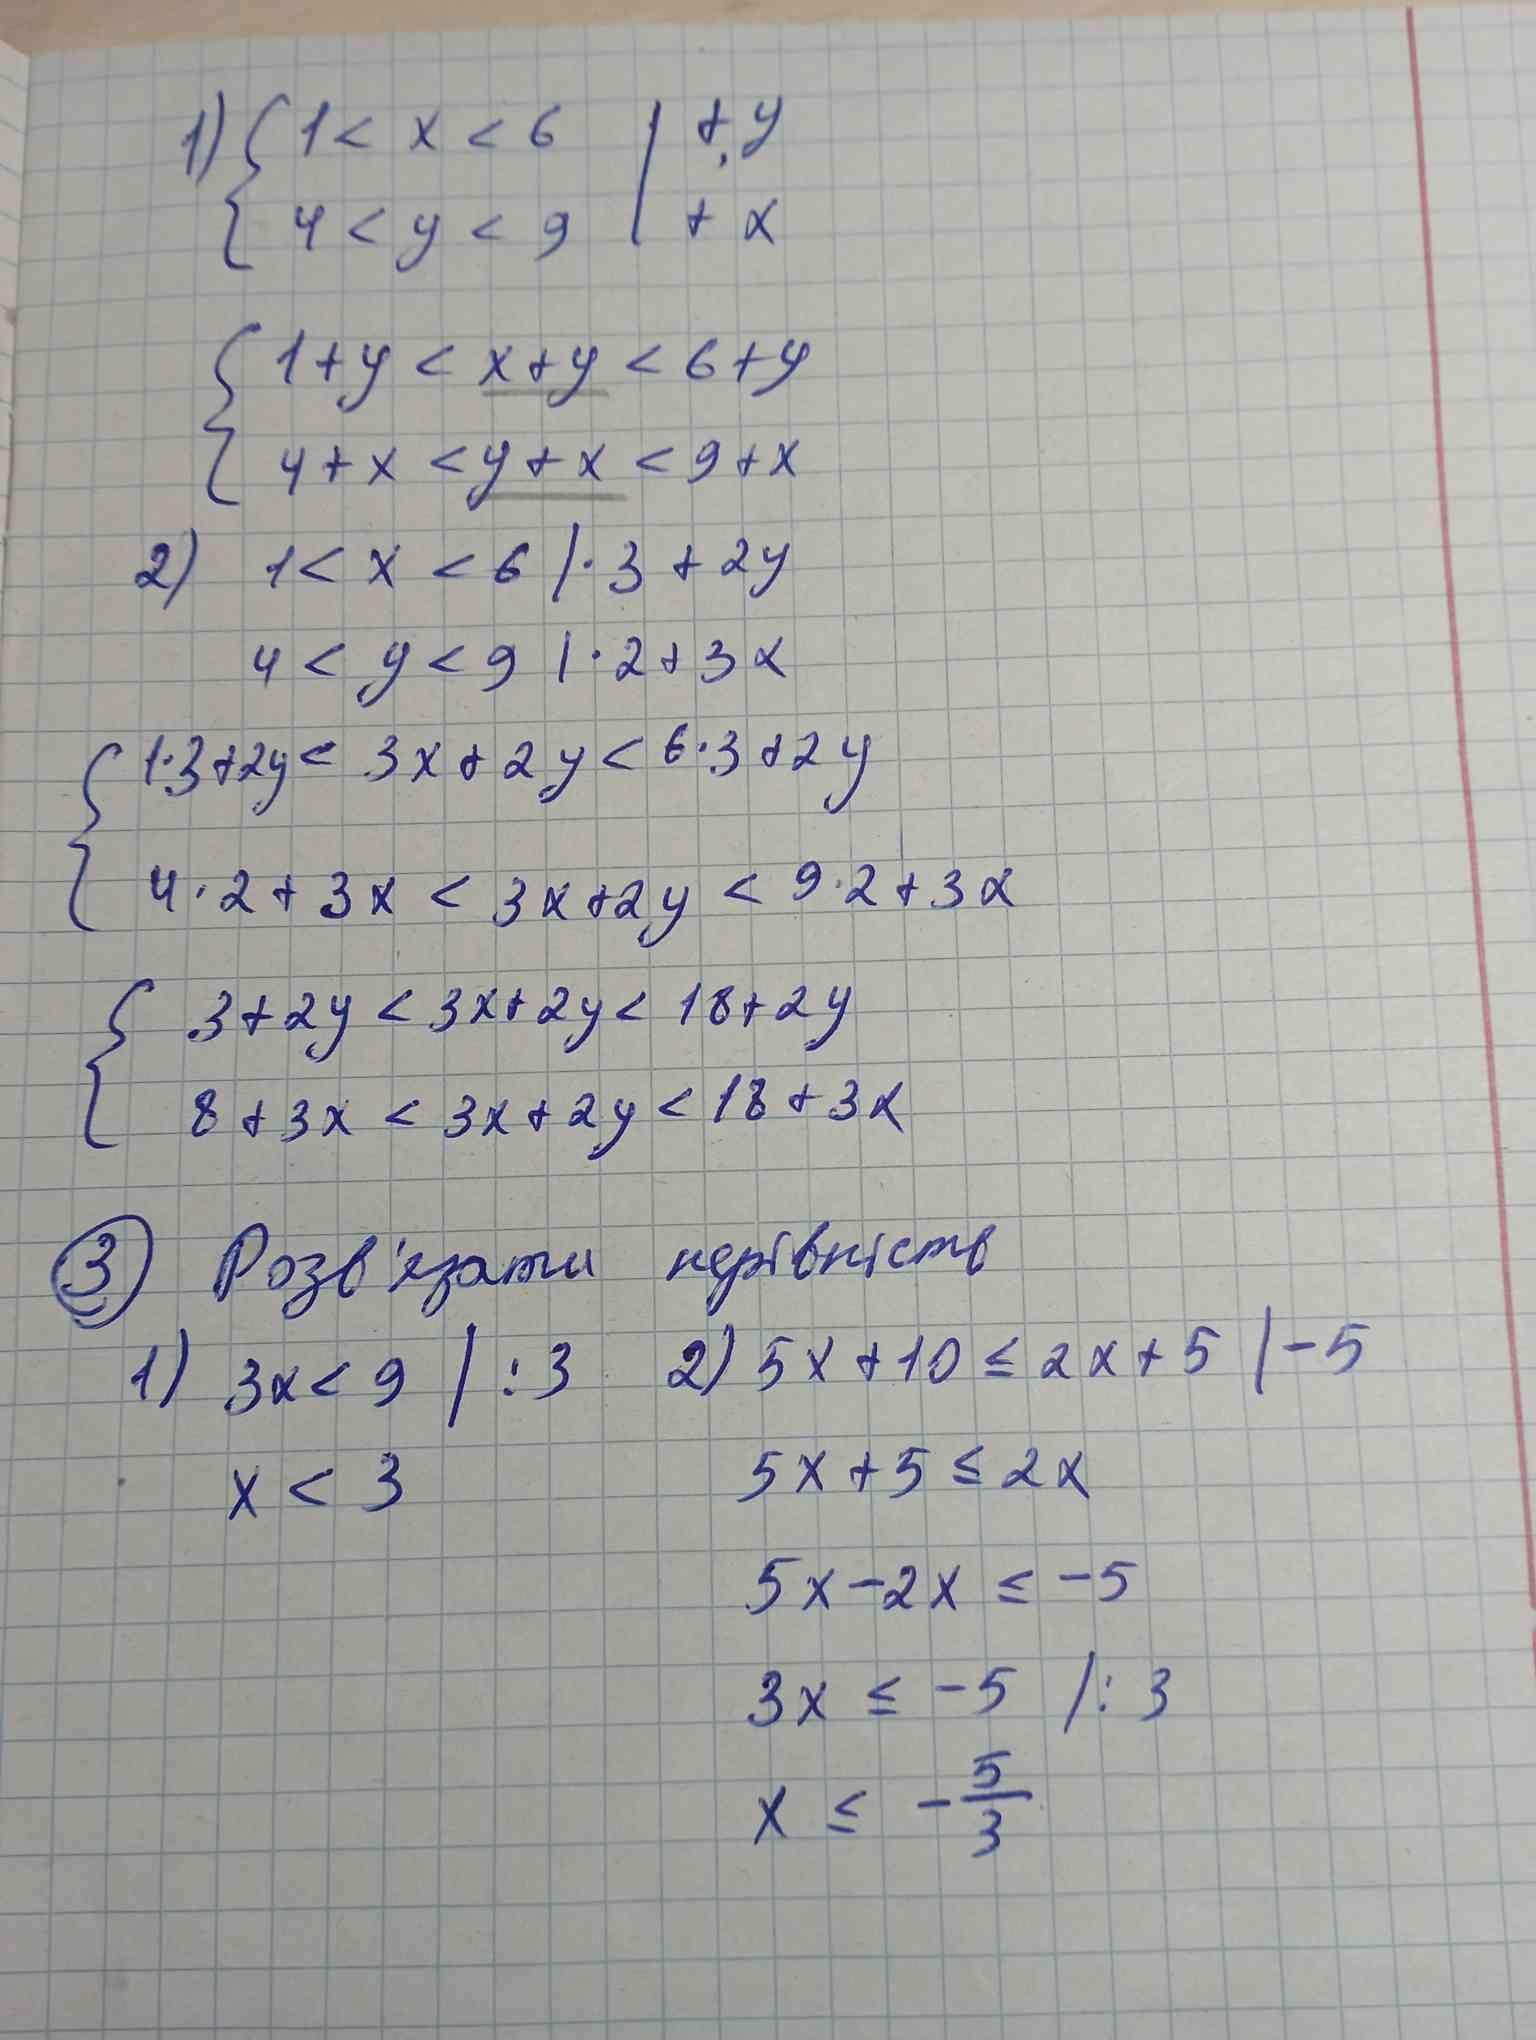 1) { 1 < x < 6 | + y
4 < y < 9 | + x
{ 1 + y < x + y < 6 + y
4 + x < y + x < 9 + x
2) 1 < x < 6 | · 3 + 2y
4 < y < 9 | · 2 + 3x
{ 1·3 + 2y < 3x + 2y < 6·3 + 2y
4·2 + 3x < 3x + 2y < 9·2 + 3x
{ 3 + 2y < 3x + 2y < 18 + 2y
8 + 3x < 3x + 2y < 18 + 3x
③ Розв'язати нерівність
1) 3x < 9 | : 3 2) 5x + 10 ≤ 2x + 5 | - 5
x < 3 5x + 5 ≤ 2x
5x - 2x ≤ -5
3x ≤ -5 | : 3
x ≤ - 5/3